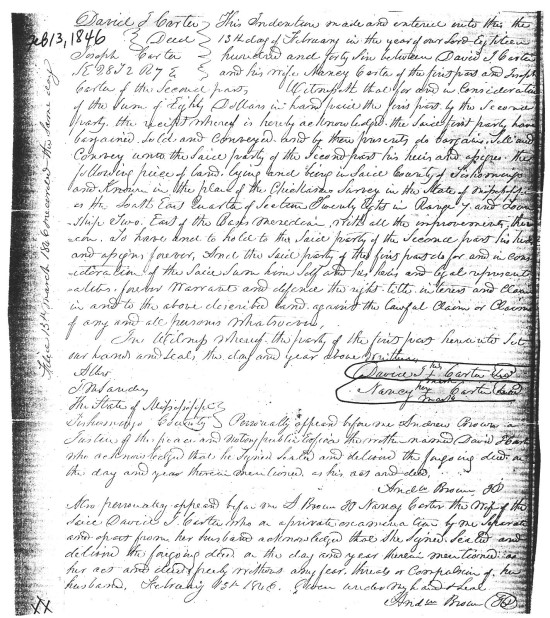 Feb 13, 1846
David J Carter
} Deed
Joseph Carter
SE 28 T2 R7 E
This Indenture made and entered into this the
13th day of February in the year of our Lord Eighteen
hundred and forty Six between David J Carter
and his wife Nancy Carter of the first part and Joseph
Carter of the Second part, Witnesseth that for and in Consideration
of the Sum of Eighty Dollars in hand paid the first part by the Second
party the receipt whereof is hereby acknowledged the Said first party have
bargained Sold and Conveyed and by these presents do bargain, Sell and
Convey unto the Said party of the Second part his heirs and assigns the
following piece of land lying and being in Said County of Tishomingo
and Known in the plan of the Chickasaw Survey in the State of Mississippi
as the South East Quarter of Section Twenty eight in Range 7 and Town
Ship Two. East of the Basis Meredian with all the improvements, there
=on. To have and to hold to the Said party of the Second part his heirs
and assigns forever, And the Said party of the first part do for and in cons
=ideration of the Said Sum him Self and his heirs and legal represent
=atives forever Warrant and defend the right title interest and Claim
in and to the above described land against the lawful Claim or Claims
of any and all persons Whatsoever,
In Witness whereof the party of the first part hereunto Set
our hands and Seals, the day and year above Written
Attest
David J his mark Carter Seal
Nancy her mark Carter Seal
The State of Mississippi
Tishomingo County } Personally appeard before me Andrew Brown a
Justice of the peace and notory public the within named David J Carter
who acknowledged that he Signed Sealed and delivered the forgoing deed on
the day and year therein mentioned as his act and deed,
Andw Brown JP
Also personally appeard before me A Brown JP Nancy Carter the Wife of the
Said David J. Carter who on a private examination by me Separate
and apart from her husband acknowledged that She Signed Sealed and
delivered the forgoing deed on the day and year therein mentioned as
her act and deed freely without any fear, threats or Compulsion of her
husband, February 13th 1846. Given under my hand & Seal
Andw Brown JP
Filed 13th March 1846 recorded the same day
XX